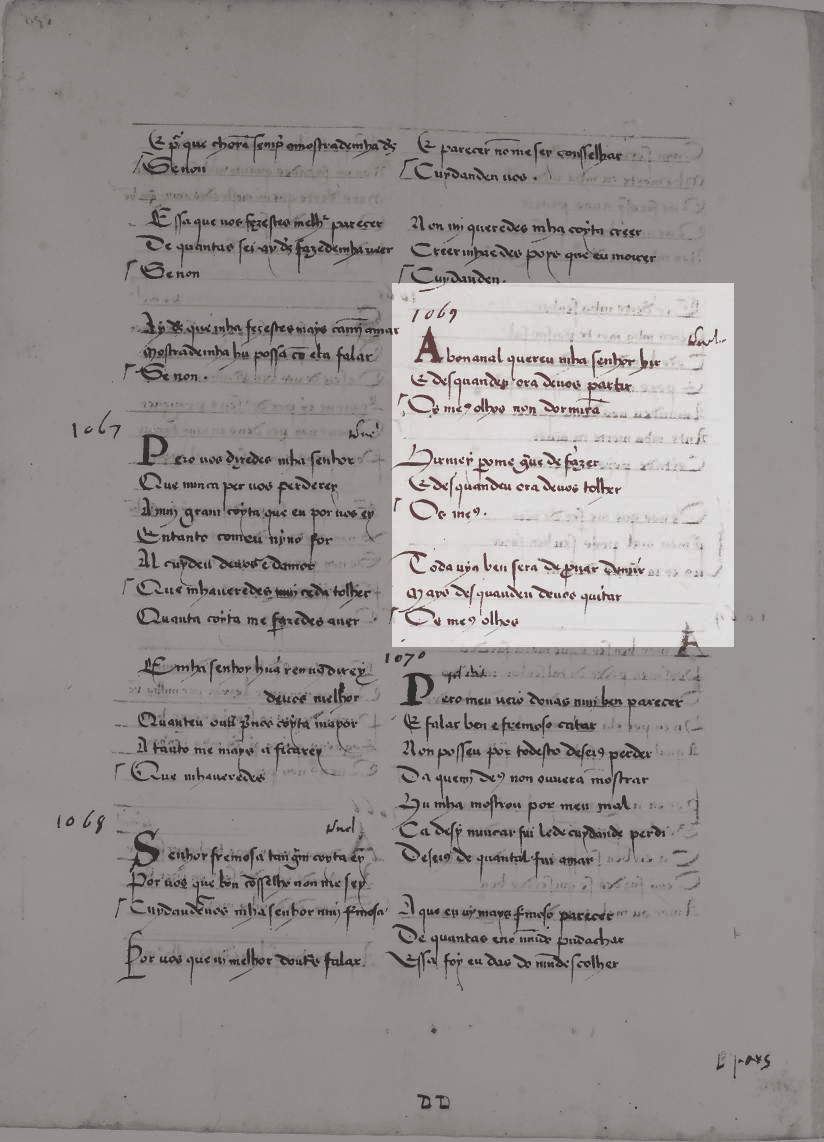 E p̃ que chorã semp̃ amostrademha d̃s
Senon
Essa que uos fezestes melhʳ parecer
De quantas sei ay d̃s fazedemha ueer
Senon
Ay d̃s que mha fezestes mays camĩ amar
Mostrademha hu possa cõ ela falar
Senon.
1067
Pero uos dizedes mha senhor
Que nunca per uos perderey
A mui gram coyta que eu por uos ey
Entanto comeu uyuo for
Al cuydeu deuos e damor
Que mhaueredes mui ceda tolher
Quanta coyta me fazedes auer
E mha senhor hũa ren uos direy
deuos melhor
Quanteu ouũ de uos coyta mayor
A tãto me mays a ficarey
Que mhaueredes
1068
Senhor fremosa tan gram coyta ey
Por uos que bon cõsselho non me sey
Cuydandeuos mha senhor mui fremosa
Por uos que ui melhor doutr̃s falar.
E parecer nõ me sey consselhar
Cuydanden uos.
Non mi queredes mha coyta creer
Creer mhaedes poys que eu morrer
Cuydanden.
1069
Abonanal quereu mha senhor hir
E desquandeu ora deuos partir
Os meꝯ olhos non dormirã
Hirmey pome g̃ue de fazer
E desquandeu ora deuos tolher
Os meꝯ.
Toda uya ben sera de ꝓuar demir
Mays desquandeu deuos quitar
Os meꝯ olhos
1070
Pero meu uero donas mui ben parecer
E falar ben e fremoso catar
Non posseu por todesto deseiꝯ perder
Da quem deꝯ non ouuera mostrar
Hu mha mostrou por meu mal
Ca desy nuncar fui lede cuydande perdi
Deseiꝯ de quantal fui amar
A que eu uy mays fmoso parecer
De quantas eno mũdo pudachar
Essa foy eu das do mũdescolher